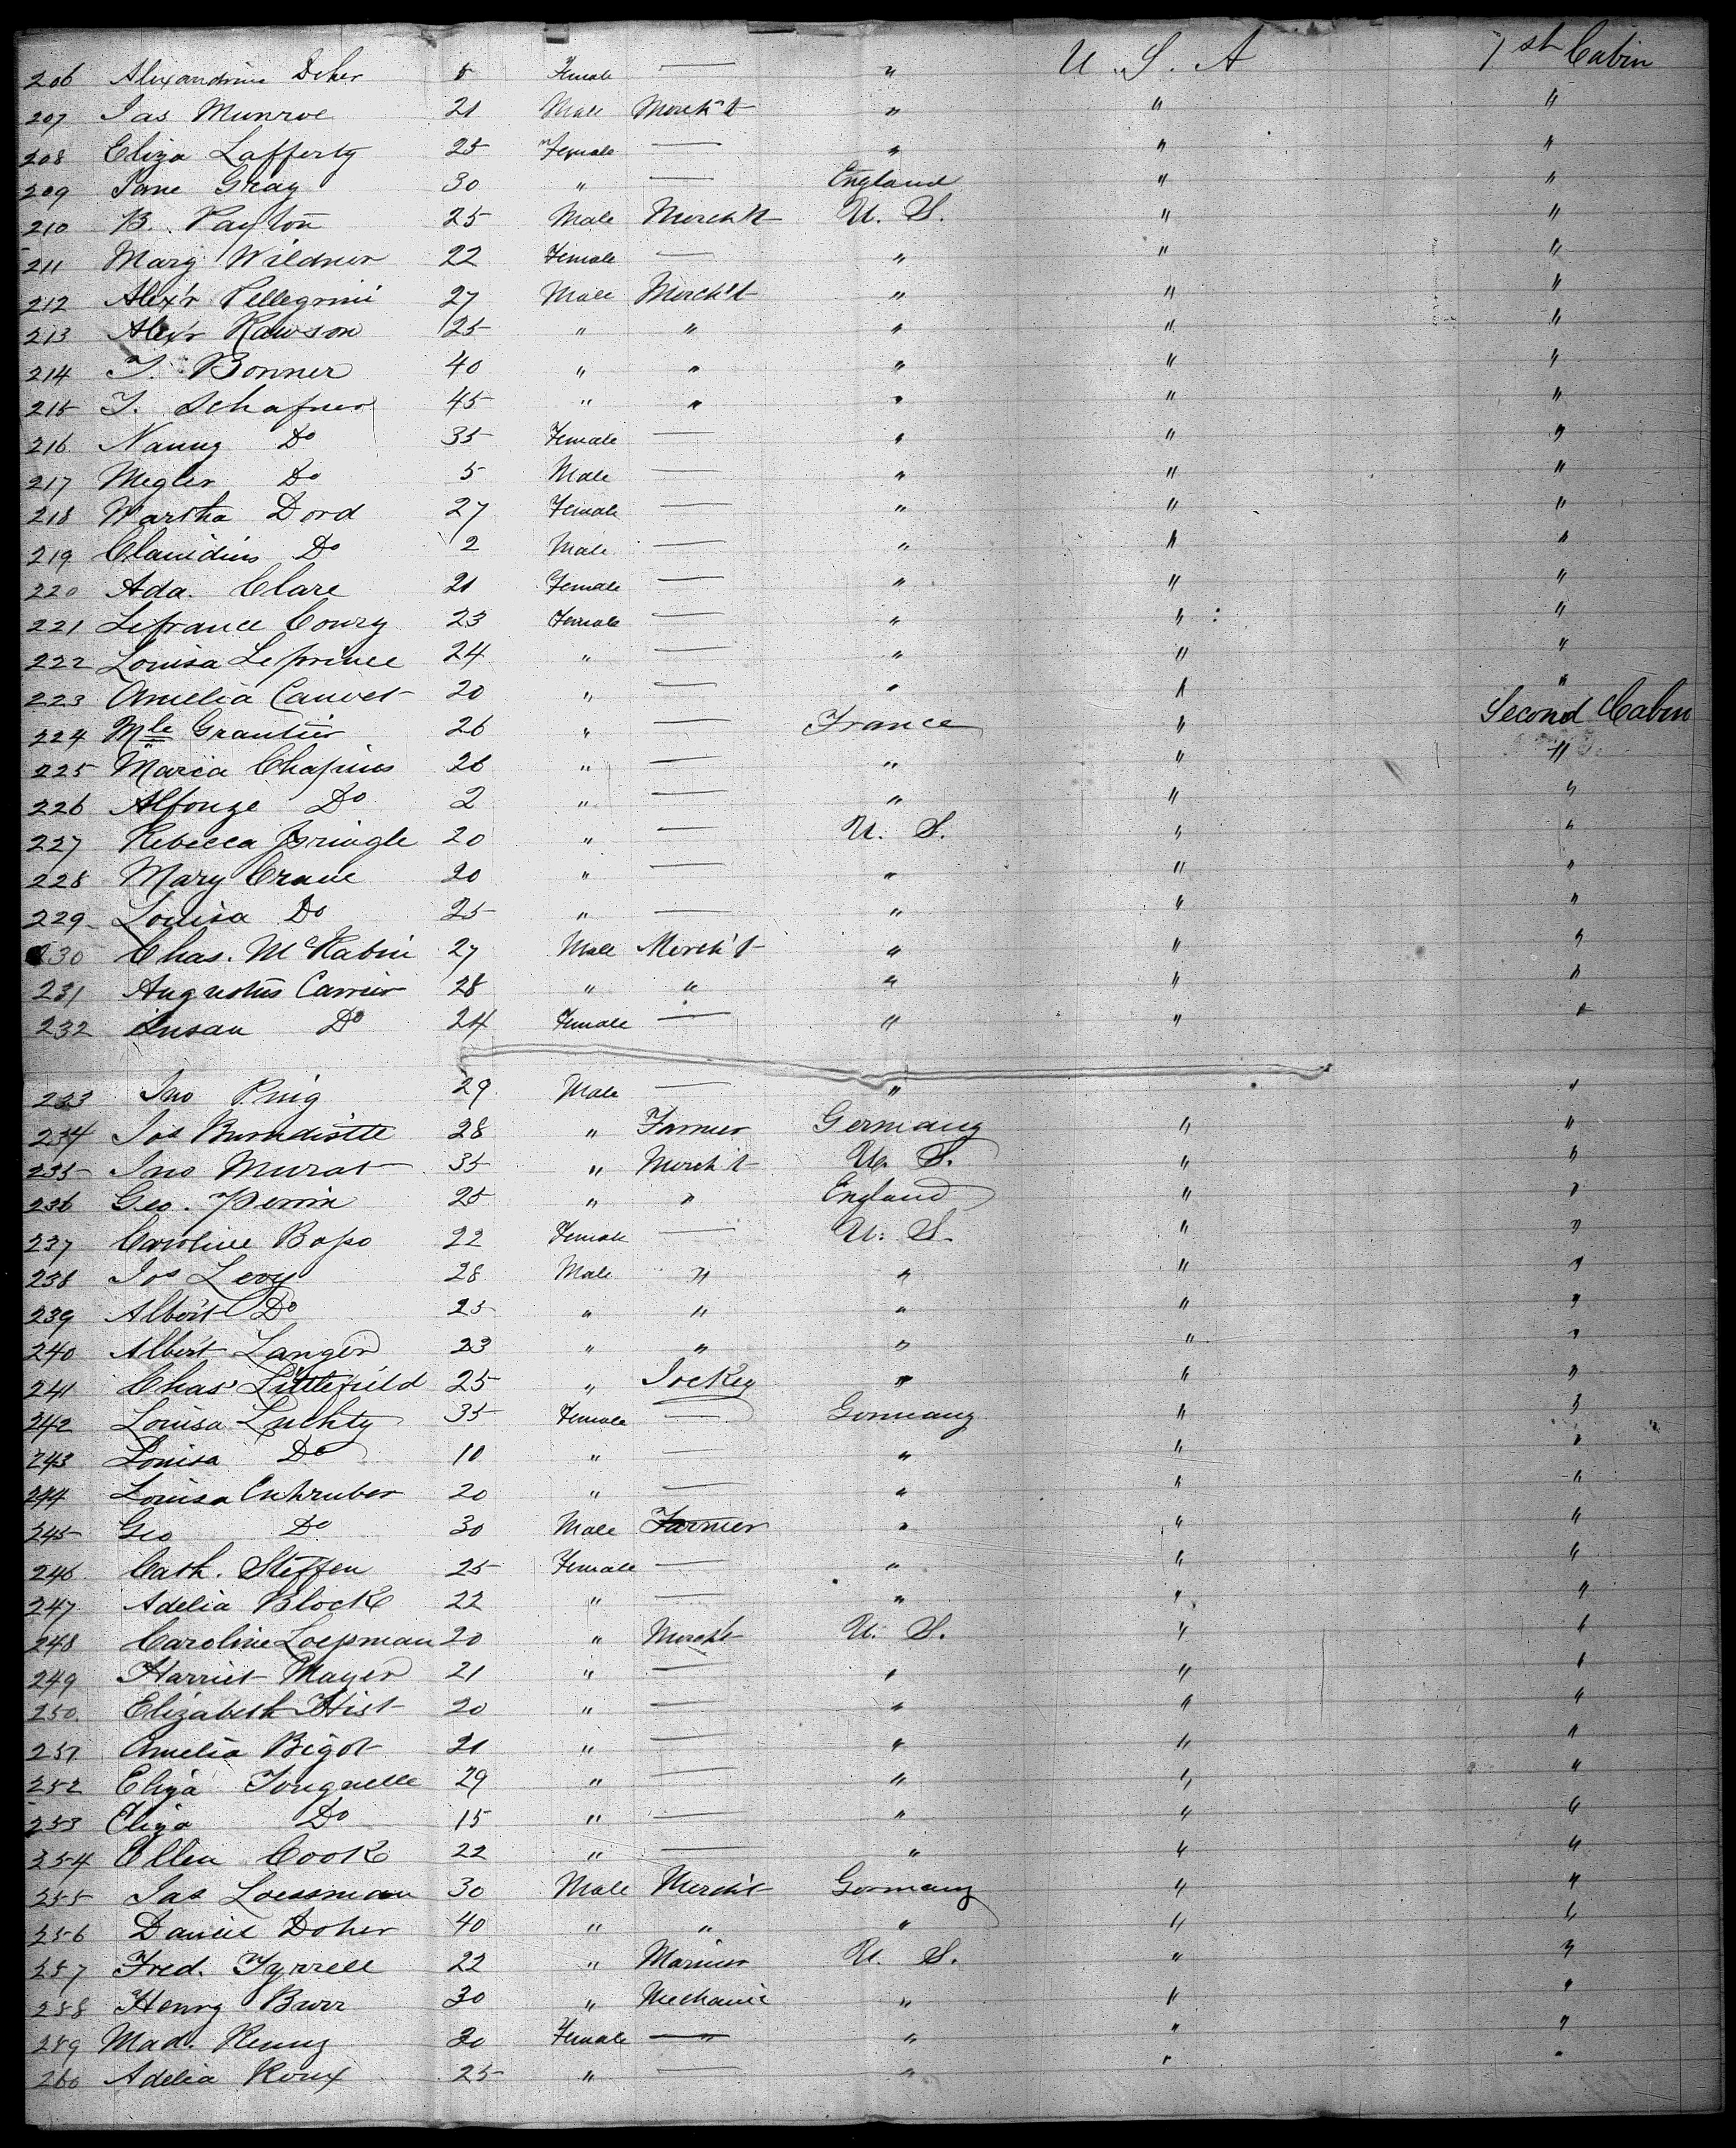 206 Alexandrine Deher 5 Female — " U. S. A 1st Cabin
207 Jas Munroe 21 Male Merch't " " "
208 Eliza Lafferty 25 Female — " " "
209 Jane Gray 30 " — England " "
210 B. Payton 25 Male Merch't U. S. " "
211 Mary Wildner 22 Female — " " "
212 Alex'r Pellegrini 27 Male Merch't " " "
213 Alex'r Rawson 25 " " " " "
214 T. Bonner 40 " " " " "
215 T. Schafner 45 " " " " "
216 Nanny Do 35 Female — " " "
217 Megler Do 5 Male — " " "
218 Martha Dord 27 Female — " " "
219 Claudius Do 2 Male — " " "
220 Ada. Clare 21 Female — " " "
221 Lefrance Coury 23 Female — " " "
222 Louisa Leprince 24 " — " " "
223 Amelia Cauvet 20 " — " " "
224 Mlle Grautier 26 " — France " Second Cabin
225 Maria Chapius 26 " — " " "
226 Alfonze Do 2 " — " " "
227 Rebecca Pringle 20 " — U. S. " "
228 Mary Crane 20 " — " " "
229 Louisa Do 25 " — " " "
230 Chas. McRabin 27 Male Merch't " " "
231 Augustus Carrier 28 " " " " "
232 Susan Do 24 Female — " " "
233 Jno Puig 29 Male — " "
234 Jos Burndistte 28 " Farmer Germany " "
235 Jno Murat 35 " Merch't U. S. " "
236 Geo. Perrin 25 " " England " "
237 Caroline Bopo 22 Female — U. S. " "
238 Jos Levy 28 Male " " " "
239 Albert Do 25 " " " " "
240 Albert Langer 23 " " " " "
241 Chas Littlefield 25 " Jockey " " "
242 Louisa Luchty 35 Female — Germany " "
243 Louisa Do 10 " — " " "
244 Louisa 20 " — " " "
245 Geo Do 30 Male Farmer " " "
246 Cath. Steffen 25 Female — " " "
247 Adelia Block 22 " — " " "
248 Caroline Loepman 20 " Merch't U. S. " "
249 Harriet Mayer 21 " — " " "
250 Elizabeth Hist 20 " — " " "
251 Amelia Bigot 21 " — " " "
252 Eliza Touguelle 29 " — " " "
253 Eliza Do 15 " — " " "
254 Ellen Cook 22 " — " " "
255 Jas Loessman 30 Male Merch't Germany " "
256 Daniel Doher 40 " " " " "
257 Fred. Tyrrell 22 " Mariner U. S. " "
258 Henry Burr 30 " Mechanic " " "
259 Mad. Remy 30 Female — " " "
260 Adelia Roux 25 " — " " "